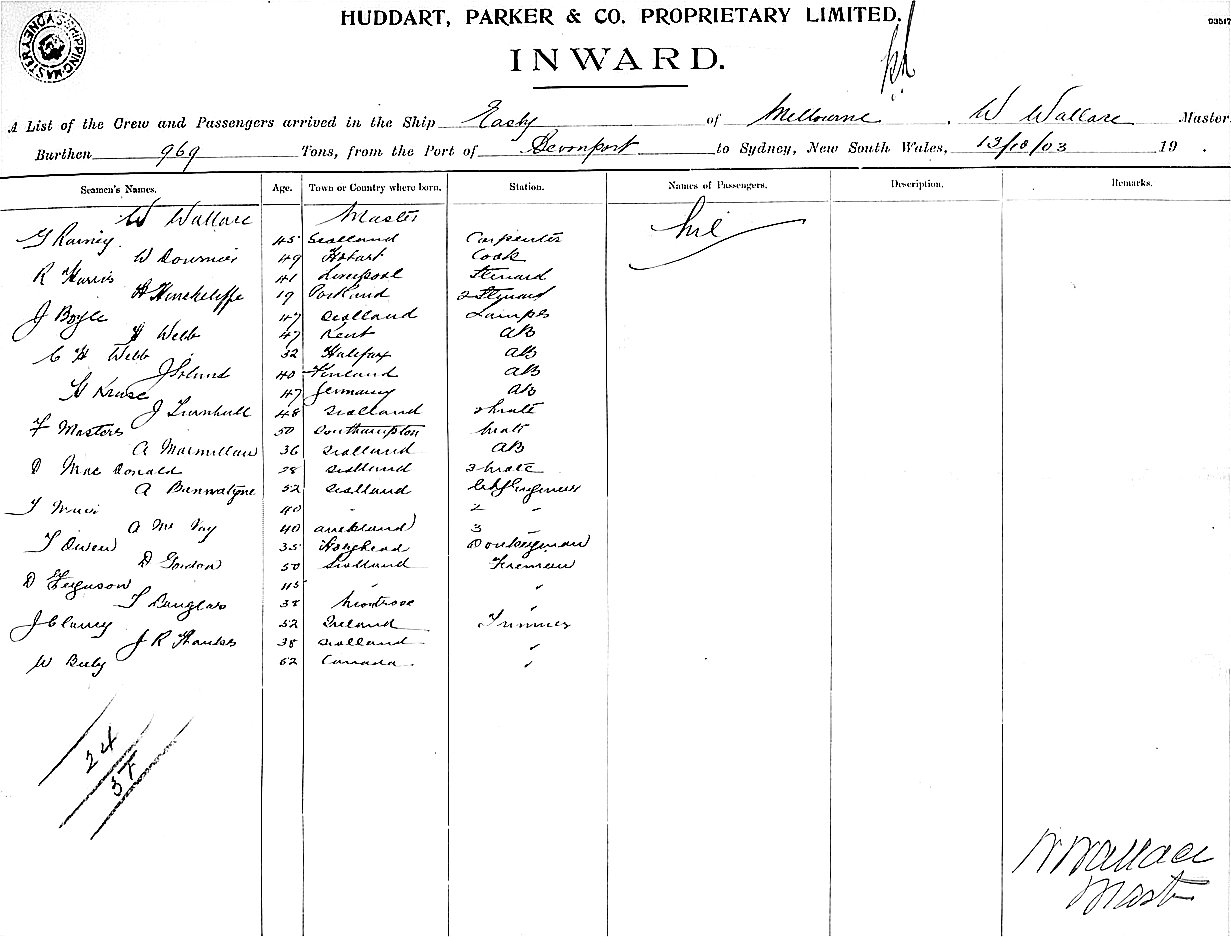 HUDDART, PARKER & CO. PROPRIETARY LIMITED.
93517
SHIPPING MASTER SYDNEY
INWARD.
A List of the Crew and Passengers arrived in the Ship Easby of Melbourne, W Wallace Master
Burthen 969 Tons, from the Port of Devonport to Sydney, New South Wales, 13/10/03 19 .
Seamen's Names. Age. Town or Country where born. Station. Names of Passengers. Description. Remarks.
W Wallace Master nil
G Rainey 45 Scotland Carpenter
W Downie 49 Hobart Cook
R Harris 41 Liverpool Steward
H Hinchcliffe 19 2 Steward
J Boyle 47 Scotland Lamps
H Webb 47 Kent AB
C H Webb 32 Halifax AB
J 40 Finland AB
H Kruse 47 Germany AB
J Turnbull 48 Scotland 2 Mate
F Masters 50 Southampton Mate
A Macmillan 36 Scotland AB
D Mac Donald 28 Scotland 3 Mate
A Bannatyne 52 Scotland Chf Engineer
T Muir 40 " 2 "
A Mc Vay 40 Auckland 3 "
T Owen 35 Holyhead Donkeyman
D Gordon 50 Scotland Fireman
D Ferguson 45 " "
T Douglas 38 Montrose "
J Clancy 52 Ireland Trimmer
J R Hawkes 38 Scotland "
W Beily 62 Canada "
24
37
W Wallace
Master